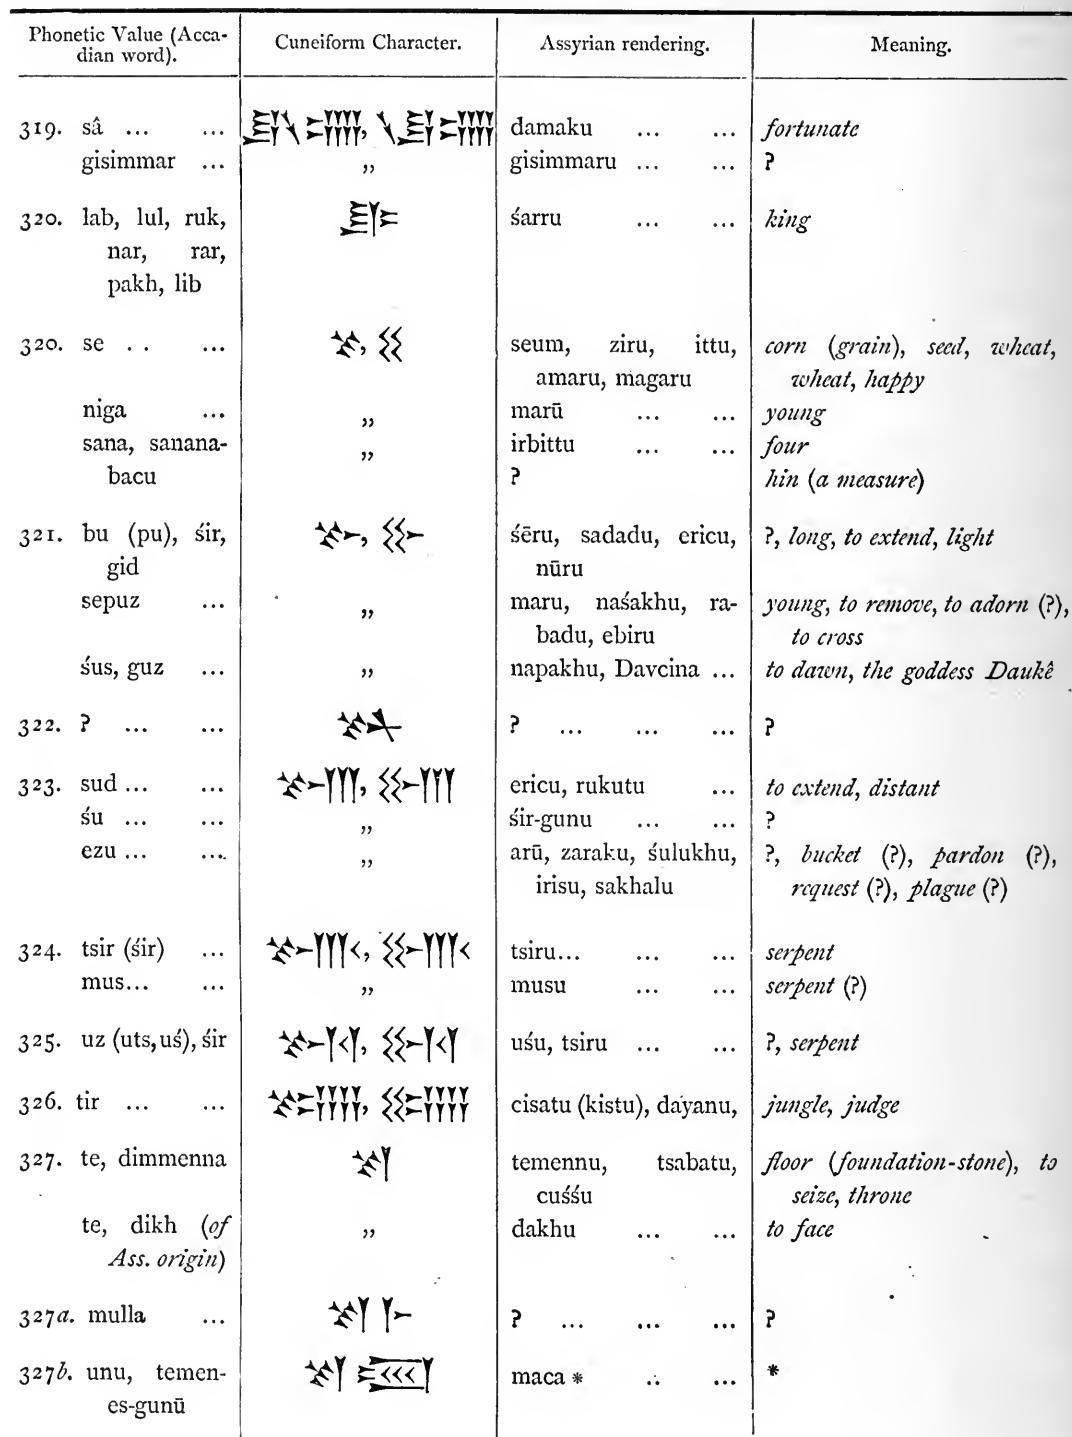 Phonetic Value (Acca-
dian word).
Cuneiform Character.
Assyrian rendering.
Meaning.
319. sâ ... ... damaku ... ... fortunate
gisimmar ... „ gisimmaru ... ... ?
320. lab, lul, ruk, śarru ... ... king
nar, rar,
pakh, lib
320. se . . ... seum, ziru, ittu, corn (grain), seed, wheat,
amaru, magaru wheat, happy
niga ... „ marū ... ... young
sana, sanana- „ irbittu ... ... four
bacu ? hin (a measure)
321. bu (pu), śir, śēru, sadadu, ericu, ?, long, to extend, light
gid nūru
sepuz ... „ maru, naśakhu, ra- young, to remove, to adorn (?),
badu, ebiru to cross
śus, guz ... „ napakhu, Davcina ... to dawn, the goddess Daukê
322. ? ... ... ? ... ... ... ?
323. sud ... ... ericu, rukutu ... to extend, distant
śu ... ... „ śir-gunu ... ... ?
ezu ... ... „ arū, zaraku, śulukhu, ?, bucket (?), pardon (?),
irisu, sakhalu request (?), plague (?)
324. tsir (śir) ... tsiru... ... ... serpent
mus... ... „ musu ... ... serpent (?)
325. uz (uts, uś), śir uśu, tsiru ... ... ?, serpent
326. tir ... ... cisatu (kistu), dayanu, jungle, judge
327. te, dimmenna temennu, tsabatu, floor (foundation-stone), to
cuśśu seize, throne
te, dikh (of „ dakhu ... ... to face
Ass. origin)
327a. mulla ... ? ... ... ... ?
327b. unu, temen- maca * .. ... *
es-gunū